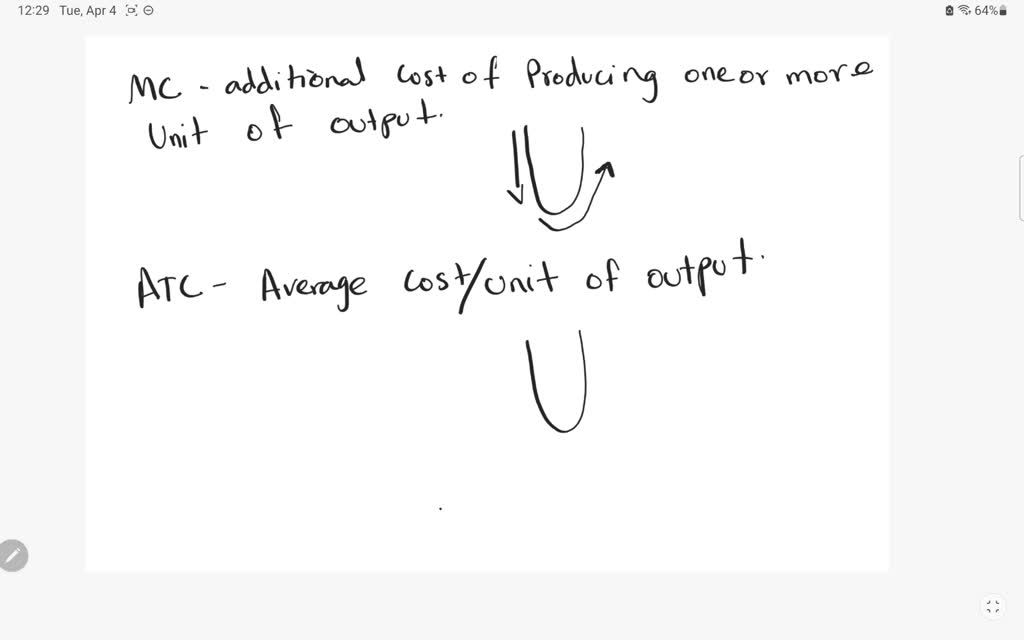 12:29 Tue, Apr 4 64%
MC - additional cost of Producing one or more
Unit of output.
ATC - Average cost/unit of output.